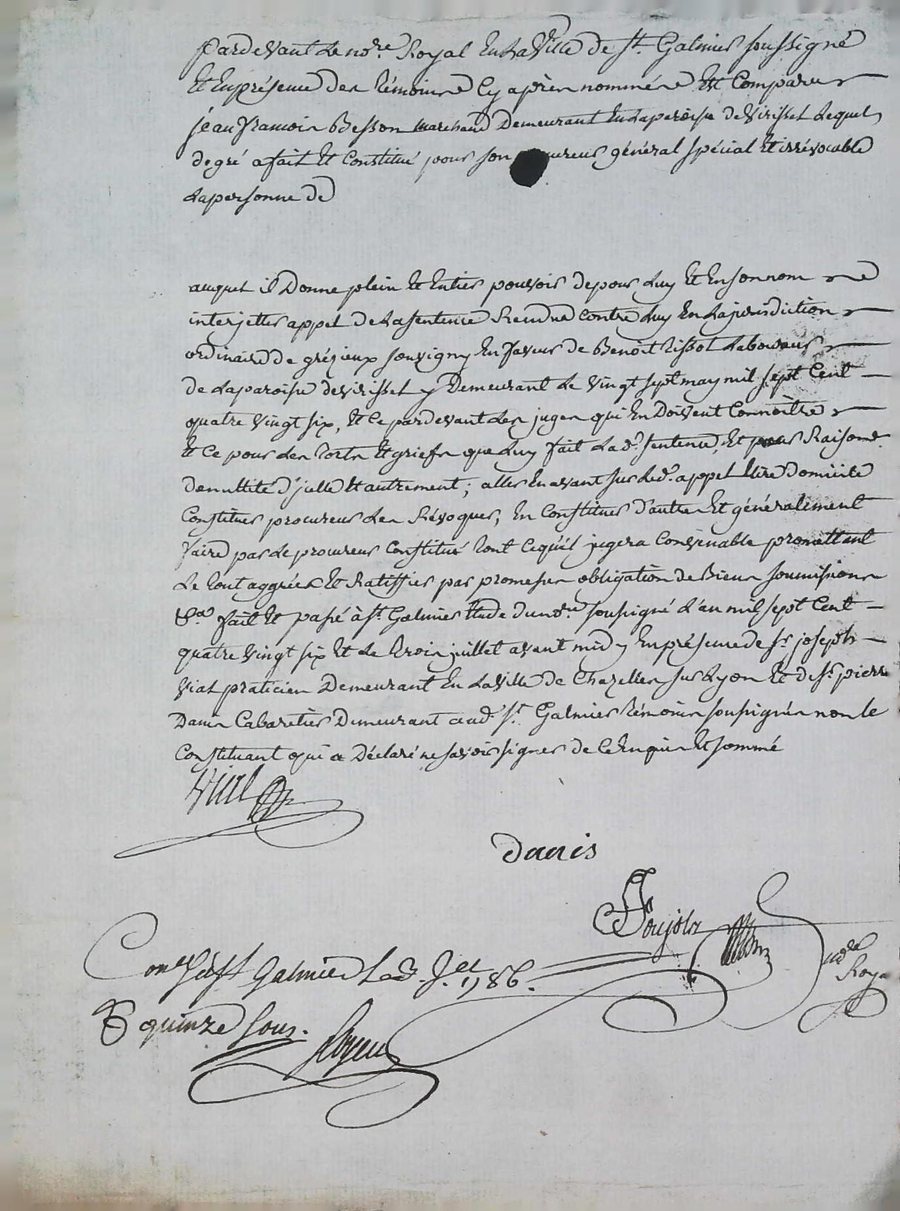 Pardevant Le no.re Royal En La Ville de St. Galmier soussigné
Et En présence des témoins Cy après nommés Est Comparu
jean françois Besson marchand Demeurant En La paroisse de Virisset Lequel
de gré a fait Et Constitué pour son général spécial Et irrévocable
La personne de
auquel il Donne plein Et Entier pouvoir de pour Luy Et En son nom
interjetter appel de La sentence Rendue Contre Luy En La jurisdiction
ordinaire de grézieux souvigny En faveur de Benoit Laboureur
de La paroisse de Virisset y Demeurant Le vingt sept may mil sept Cent
quatre vingt six, Et Ce pardevant Les juges qui En Doivent Connoitre
Et Ce pour Les torts Et griefs que Luy fait Lad. sentence, Et pour Raisons
de nullité d'jcelle Et autrement; aller En avant sur Led. appel Elire Domicile
Constituer procureur Les Révoquer, En Constituer d'autres Et généralement
faire par Le procureur Constitué tout Cequ'il jugera Convenable promettant
Le tout aggréer Et Ratiffier par promesses obligation de Biens soumissions
&a. fait Et passé à St. Galmier Etude du no.re soussigné L'an mil sept Cent
quatre vingt six Et Le trois juillet avant midy En présence de Sr. joseph
Viat praticien Demeurant En La Ville de Chazelles sur Lyon Et de Sr. pierre
Danis Cabaretier Demeurant aud. St. Galmier témoins soussignés non Le
Constituant qui a Déclaré ne savoir signer de Ce Enquis Et sommé
Viat
danis
Royal
Con.lé à St Galmier Le 3. J.et 1786.
R quinze sous.